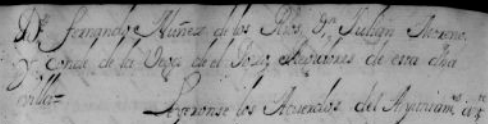 Dn. Fernando Nuñez de los Rios, Dn. Julian Moreno,
y Conde de la Vega de el Pozo, Rexidores de esta dha
villa=
Leyeronse los Acuerdos del Ayuntam.to